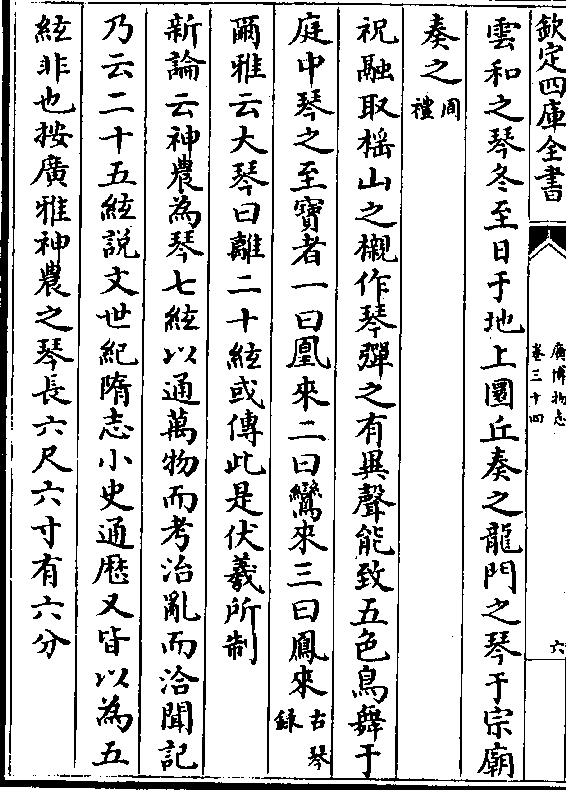 欽定四庫全書
廣博物志
卷三十四
六
雲和之琴冬至日于地上圜丘奏之龍門之琴于宗廟
奏之周禮
祝融取榣山之櫬作琴彈之有異聲能致五色鳥舞于
庭中琴之至寶者一曰凰來二曰鸞來三曰鳳來古琴錄
爾雅云大琴曰離二十絃或傳此是伏羲所制
新論云神農為琴七絃以通萬物而考治亂而洽聞記
乃云二十五絃説文世紀隋志小史通厯又皆以為五
絃非也按廣雅神農之琴長六尺六寸有六分